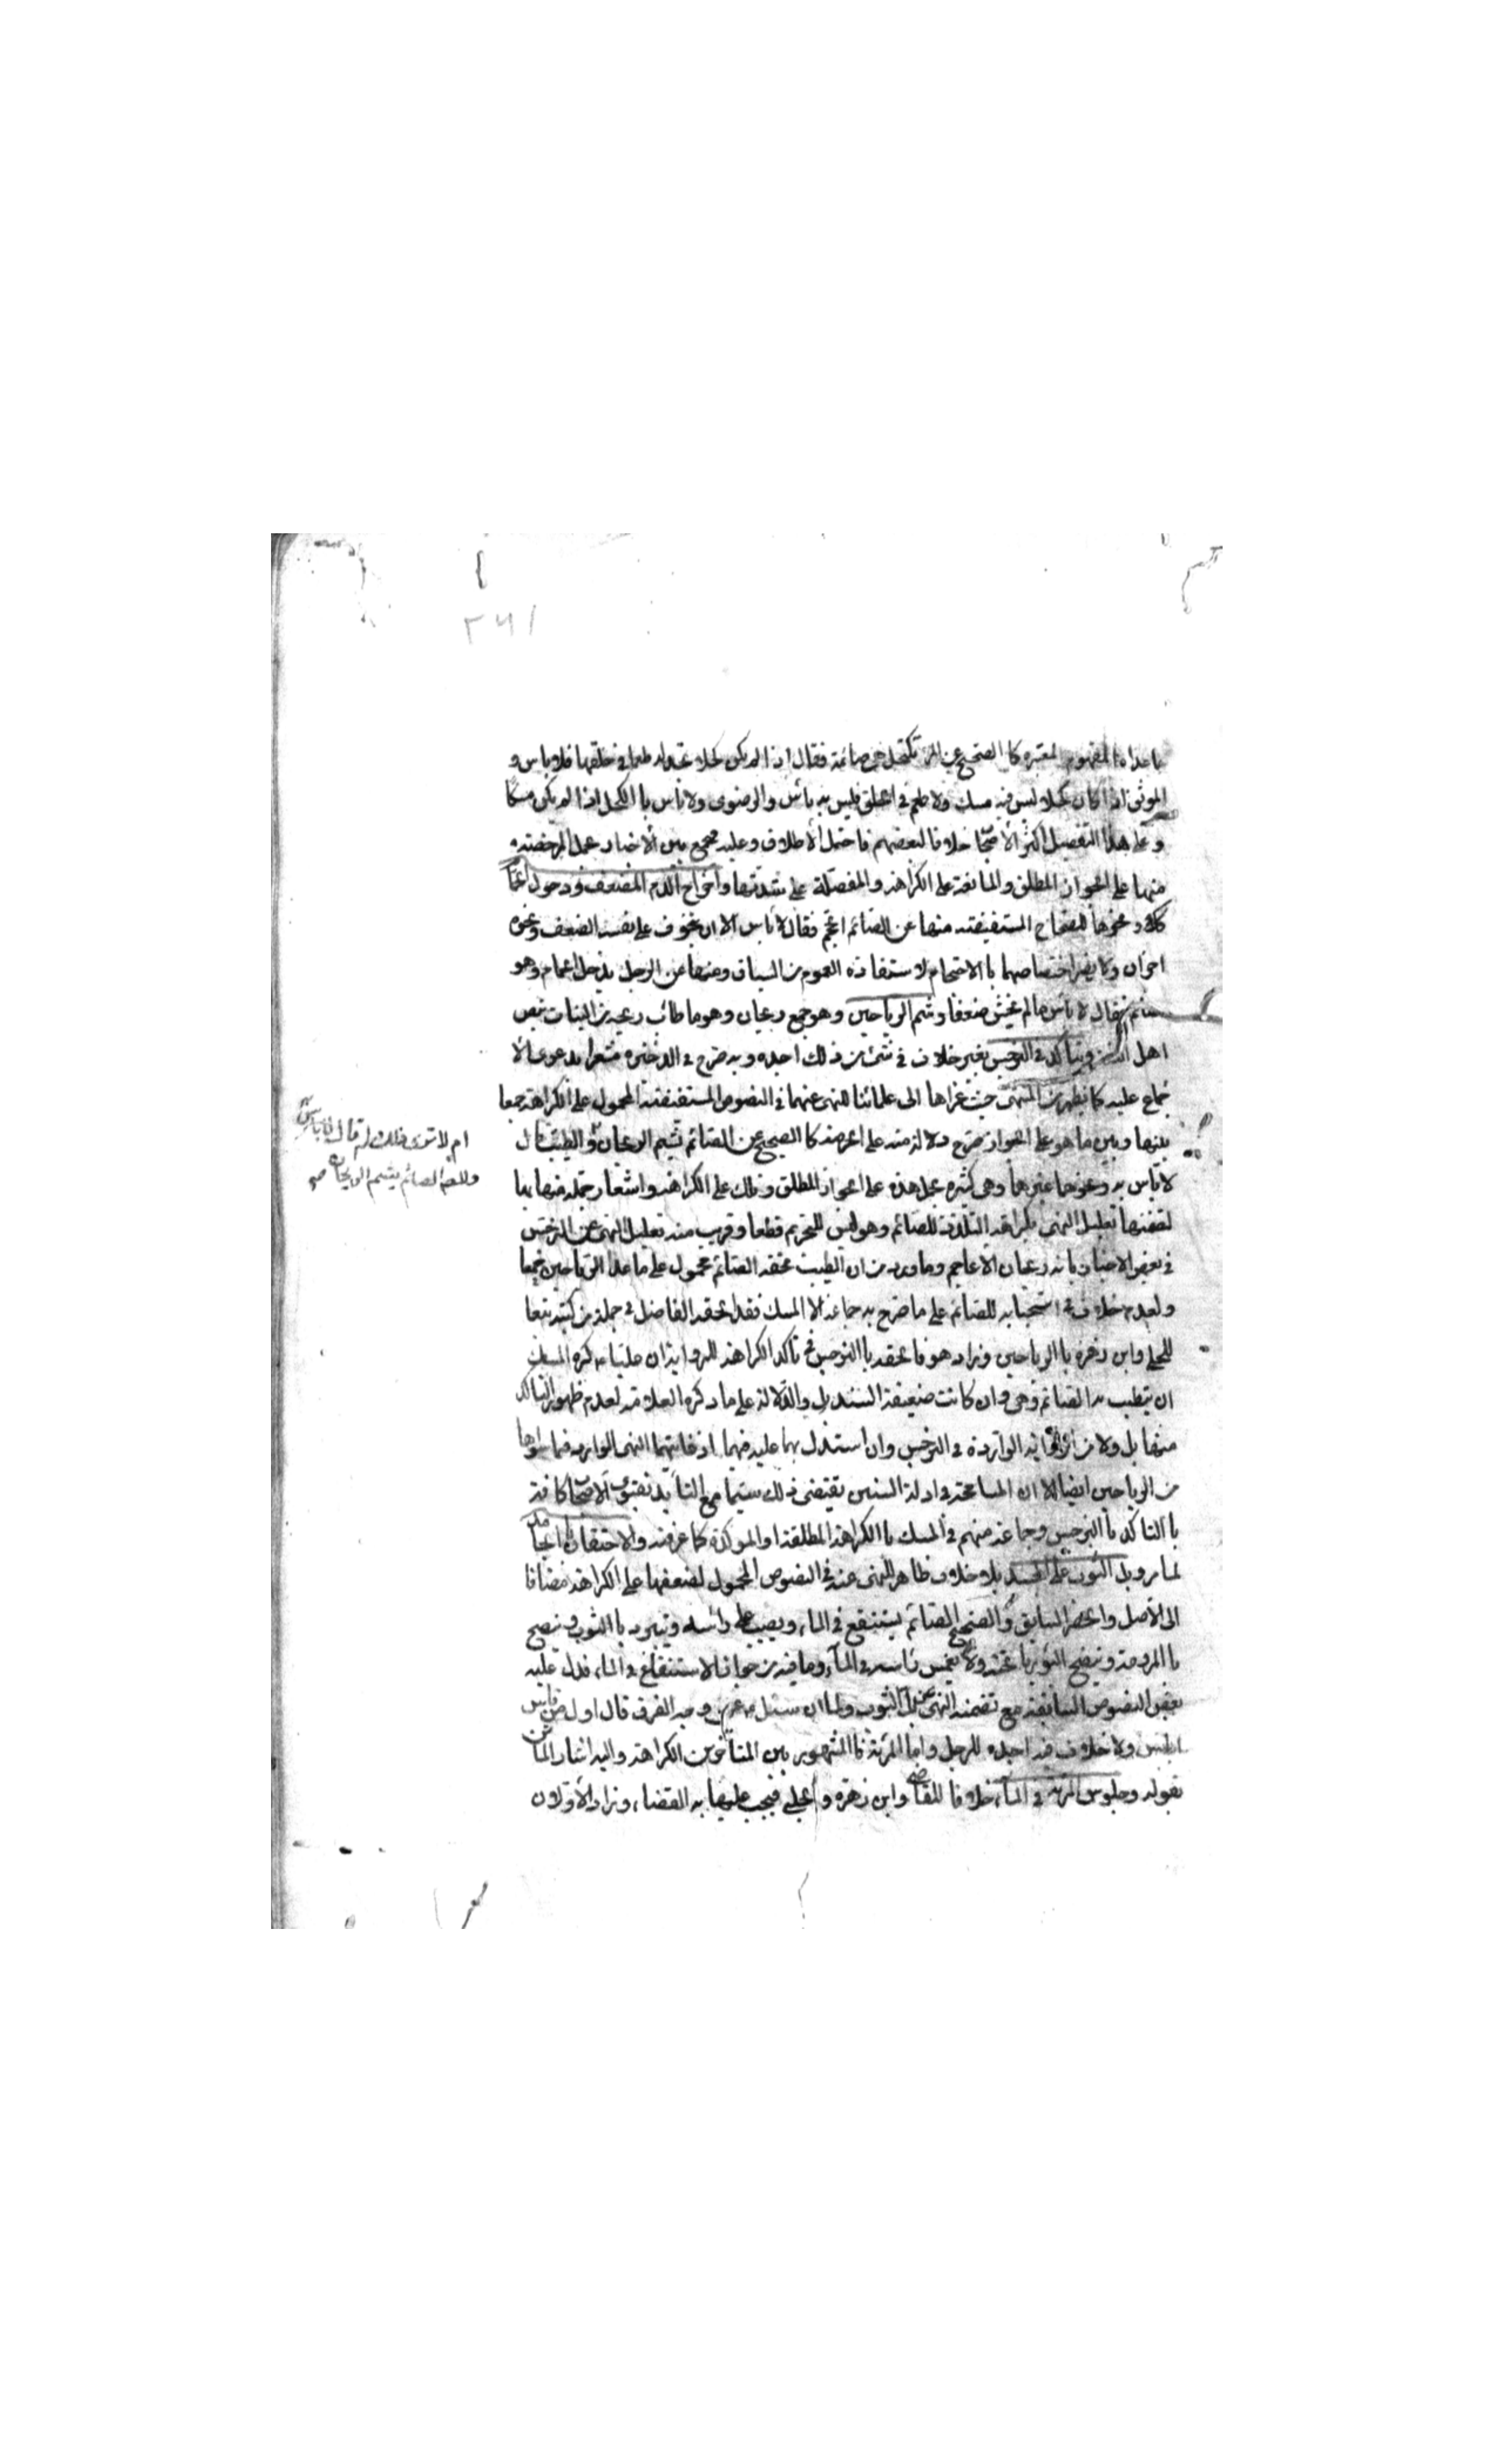 ٢٦١
ما عداه المفهوم المعتبرة كالصحيح عن المرئة تكتحل وهي صائمة فقال اذا لم يكن كحلا تجد له طعما في حلقها فلا باس و
الموثق اذا كان كحلا ليس فيه مسك ولا طعم في الحلق فليس به باس والرضوي ولا باس بالكحل اذا لم يكن ممسكا
وعلى هذا التفصيل اكثر الاصحاب خلافا لبعضهم فاحتمل الاطلاق وعليه فيجمع بين الاخبار بحمل المرخصة
منها على الجواز المطلق والمانعة على الكراهة والمفصلة على شدتها واخراج الدم المضعف ودخول الحمام
كك ونحوها للصحاح المستفيضة منها عن الصائم ايحتجم فقال لا باس الا ان يتخوف على نفسه الضعف ونحوه
اخران ولا يضر اختصاصهما بالاحتجام لاستفادة العموم من السياق ومنها عن الرجل يدخل الحمام وهو
صائم فقال لا باس ما لم يخش ضعفا وشم الرياحين وهو جمع ريحان وهو ما طاب ريحه من النبات بنص
اهل ويتاكد في النرجس بغير خلاف في شئ من ذلك اجده وبه صرح في الذخيرة مشعرا بدعوى الا
جماع عليه كما يظهر من المنتهى حيث عزاها الى علمائنا للنهي عنهما في النصوص المستفيضة المحمول على الكراهة جمعا
بينها وبين ما هو على الجواز صرح دلالة منه على الحرمة كالصحيح عن الصائم يشم الريحان والطيب قال
لا باس به ونحوها غيرهما وهي كثيرة بحمل هذه على الجواز المطلق وتلك على الكراهة واشعار جملة منها بها
لتضمنها تعليل النهي بكراهة التلذذ للصائم وهو ليس للتحريم قطعا وقريب منه تعليل النهي عن النرجس
في بعض الاخبار بانه ريحان الاعاجم وما ورد من ان الطيب تحفة الصائم محمول على ما عدا الرياحين جمعا
ولعدم خلاف في استحبابه للصائم على ما صرح به جماعة الا المسك فقد الحقه الفاضل في جملة من كتبه تبعا
للحلي وابن زهرة بالرياحين وزاد هو فالحقه بالنرجس في تاكد الكراهة للرواية ان عليا ع كره المسك
ان يتطيب به الصائم وهي وان كانت ضعيفة السند بل والدلالة على ما ذكره العلامة لعدم ظهور التاكد
منها بل ولا من الرواية الواردة في النرجس وان استدل بها عليه فيهما اذ غايتهما النهي الوارد فيما سواها
من الرياحين ايضا الا ان المسامحة في ادلة السنن يقتضي ذلك سيما مع التاييد بفتوى الاصحاب كافة
بالتاكد بالنرجس وجماعة منهم في المسك بالكراهة المطلقة او الموكدة كما عرفته والاحتقان بالجامد
لما مر وبل الثوب على الجسد بلا خلاف ظاهر للنهي عنه في النصوص المحمول لضعفها على الكراهة مضافا
الى الاصل والحصر السابق والصحيح الصائم يستنقع في الماء ويصب على راسه ويتبرد بالثوب وينضح
بالمروحة وينضح البوريا تحته ولا يغمس راسه في الماء وما فيه من جواز الاستنقاع في الماء فدل عليه
بعض النصوص السابقة مع تضمنه النهي عن بل الثوب ولما ان سئل ع عن وجه الفرق قال اول من قاس
ابليس ولا خلاف فيه اجده للرجل واما المرئة فالمشهور بين المتاخرين الكراهة واليه اشار الماتن
بقوله وجلوس المرئة في الماء خلافا للقاضي وابن زهرة والحلبي فيجب عليها به القضاء وزاد الاولان
ام لا ترى ذلك له قال لا باس
والصائم يشم الريحان صح